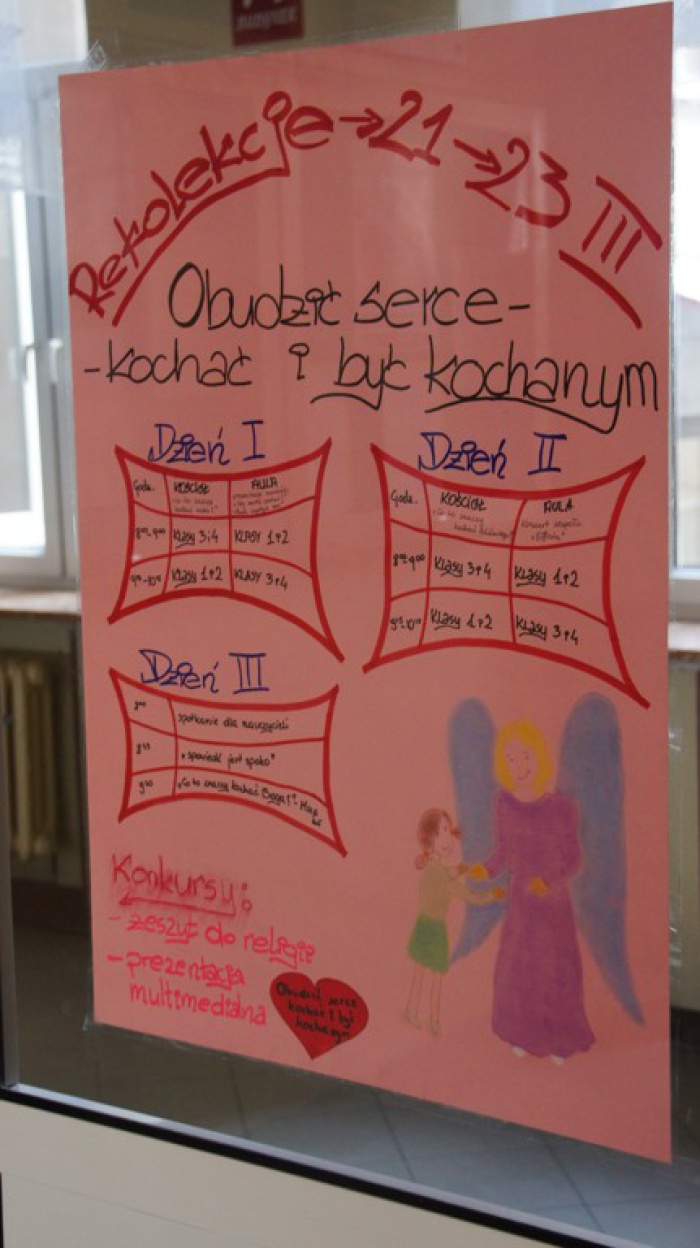 Rekolekcje → 21 → 23 III
Obudzić serce -
- kochać i być kochanym
Dzień I
Godz. KOŚCIÓŁ AULA
8⁰⁰-9⁰⁰ KLASY 3i4 KLASY 1i2
9⁰⁰-10⁰⁰ KLASY 1i2 KLASY 3i4
Dzień II
Godz. KOŚCIÓŁ AULA
„Co to znaczy koncert zespołu
kochać
8⁰⁰-9⁰⁰ KLASY 3i4 KLASY 1i2
9⁰⁰-10⁰⁰ KLASY 1i2 KLASY 3i4
Dzień III
8⁰⁰ spotkanie dla nauczycieli
8⁴⁵ „spowiedź jest spoko"
„Co to znaczy kochać Boga?" - Msza
Konkursy:
- zeszyt do religii
- prezentacja
multimedialna
Obudzić serce
kochać i być
kochanym